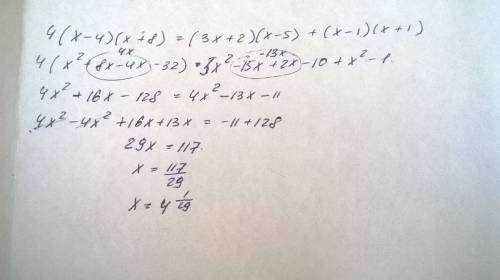 4(x-4)(x+8) = (3x+2)(x-5) + (x-1)(x+1)
4x -13x
4(x²+8x-4x-32) = 3x²-15x+2x-10+x²-1
4x²+16x-128 = 4x²-13x-11
4x²-4x²+16x+13x = -11+128
29x = 117
x = 117/29
x = 4 1/29